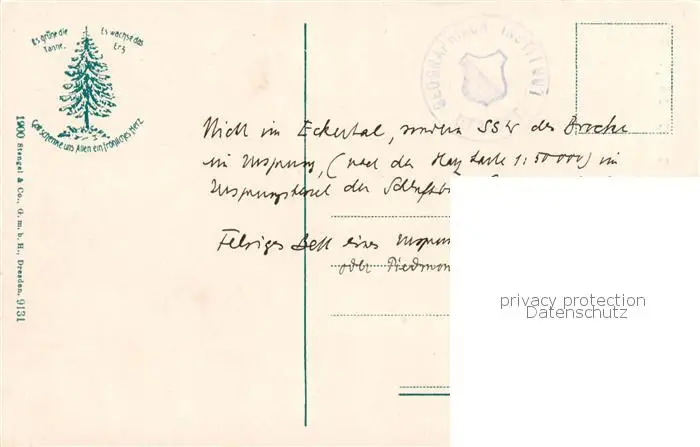 Es grüne die
Tanne.
Es wachse das
Erz
Gott schenke uns Allen ein fröhliches Herz
1900 Stengel & Co., G. m. b. H., Dresden. 9131
GEOGRAPHISCH INSTITUUT
Nicht im Eckertal, sondern SSW des Brocken
im Ursprung, (nach der Harz Karte 1:50000) im
der
Felsiges Bett eines
oder Piedmon
privacy protection
Datenschutz